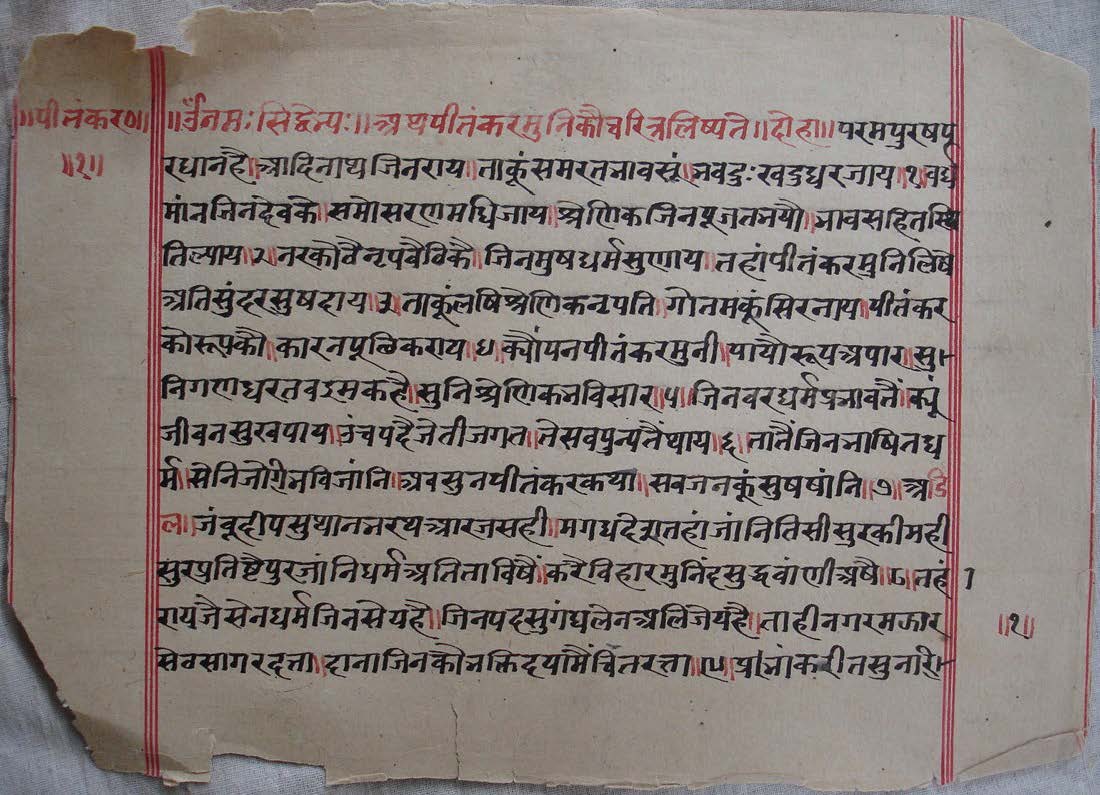 ॥पीतंकर०॥ ॥ॐनमःसिद्धेभ्यः॥अथपीतंकरमुनिकौचरित्रलिष्यते॥दोहा॥परमपुरषपू
॥१॥ रधानहै॥आदिनाथजिनराय॥ताकूंसमरतभावसूं॥भवदुःखदुघरजाय॥१॥वर्ध
मांनजिनंदेवकै॥समोसरणमधिजाय॥श्रेणिकजिनपूजतभयौ॥भावसहित
तिल्याय॥२॥नरकोवैनृपवैविकै॥जिनमुषधर्मसुणाय॥तहांपीतंकरमुनिलिषे
अतिसुंदरसुषदाय॥३॥ताकूंलषिश्रेणिकनृपति॥गोतमकूंसिरनाय॥पीतंकर
कोरूपकौ॥कारनपूछिकराय॥४॥क्यौंपनपीतंकरमुनी॥पायौरूपअपार॥सु
निगणधरतबइमकहै॥सुनिश्रेणिकभविसार॥५॥जिनवरधर्मप्रभावतैं॥क्यूं
जीवनसुखपाय॥उंचपदैजेतीजगत॥तेसवपुन्यतैंथाय॥६॥तातैंजिनभाषितध
र्म॥सेनिजोगेभविजांनि॥अवसुनपीतंकरकथा॥सबजनकूंसुषषांनि॥७॥अडि
ल॥जंबूद्वीपसुथानभरथआरजसही॥मगधदेशतहांजांनितिसीसुरकीमही
सुरप्रतिष्टैपुरजांनिधर्मअतिताविषैं॥करैविहारमुनिंदसुद्धवांणीअषै॥८॥तहं
रायजैसेनधर्मजिनसेयहै॥जिनपदसुगंधलेनअलिजेयहै॥ताहीनगरमझार
सेवसागरदत्ता॥दानाजिनकौभक्तिदयामैंचितरत्ता॥९॥प्रभांकरीतसुनारि
॥१॥